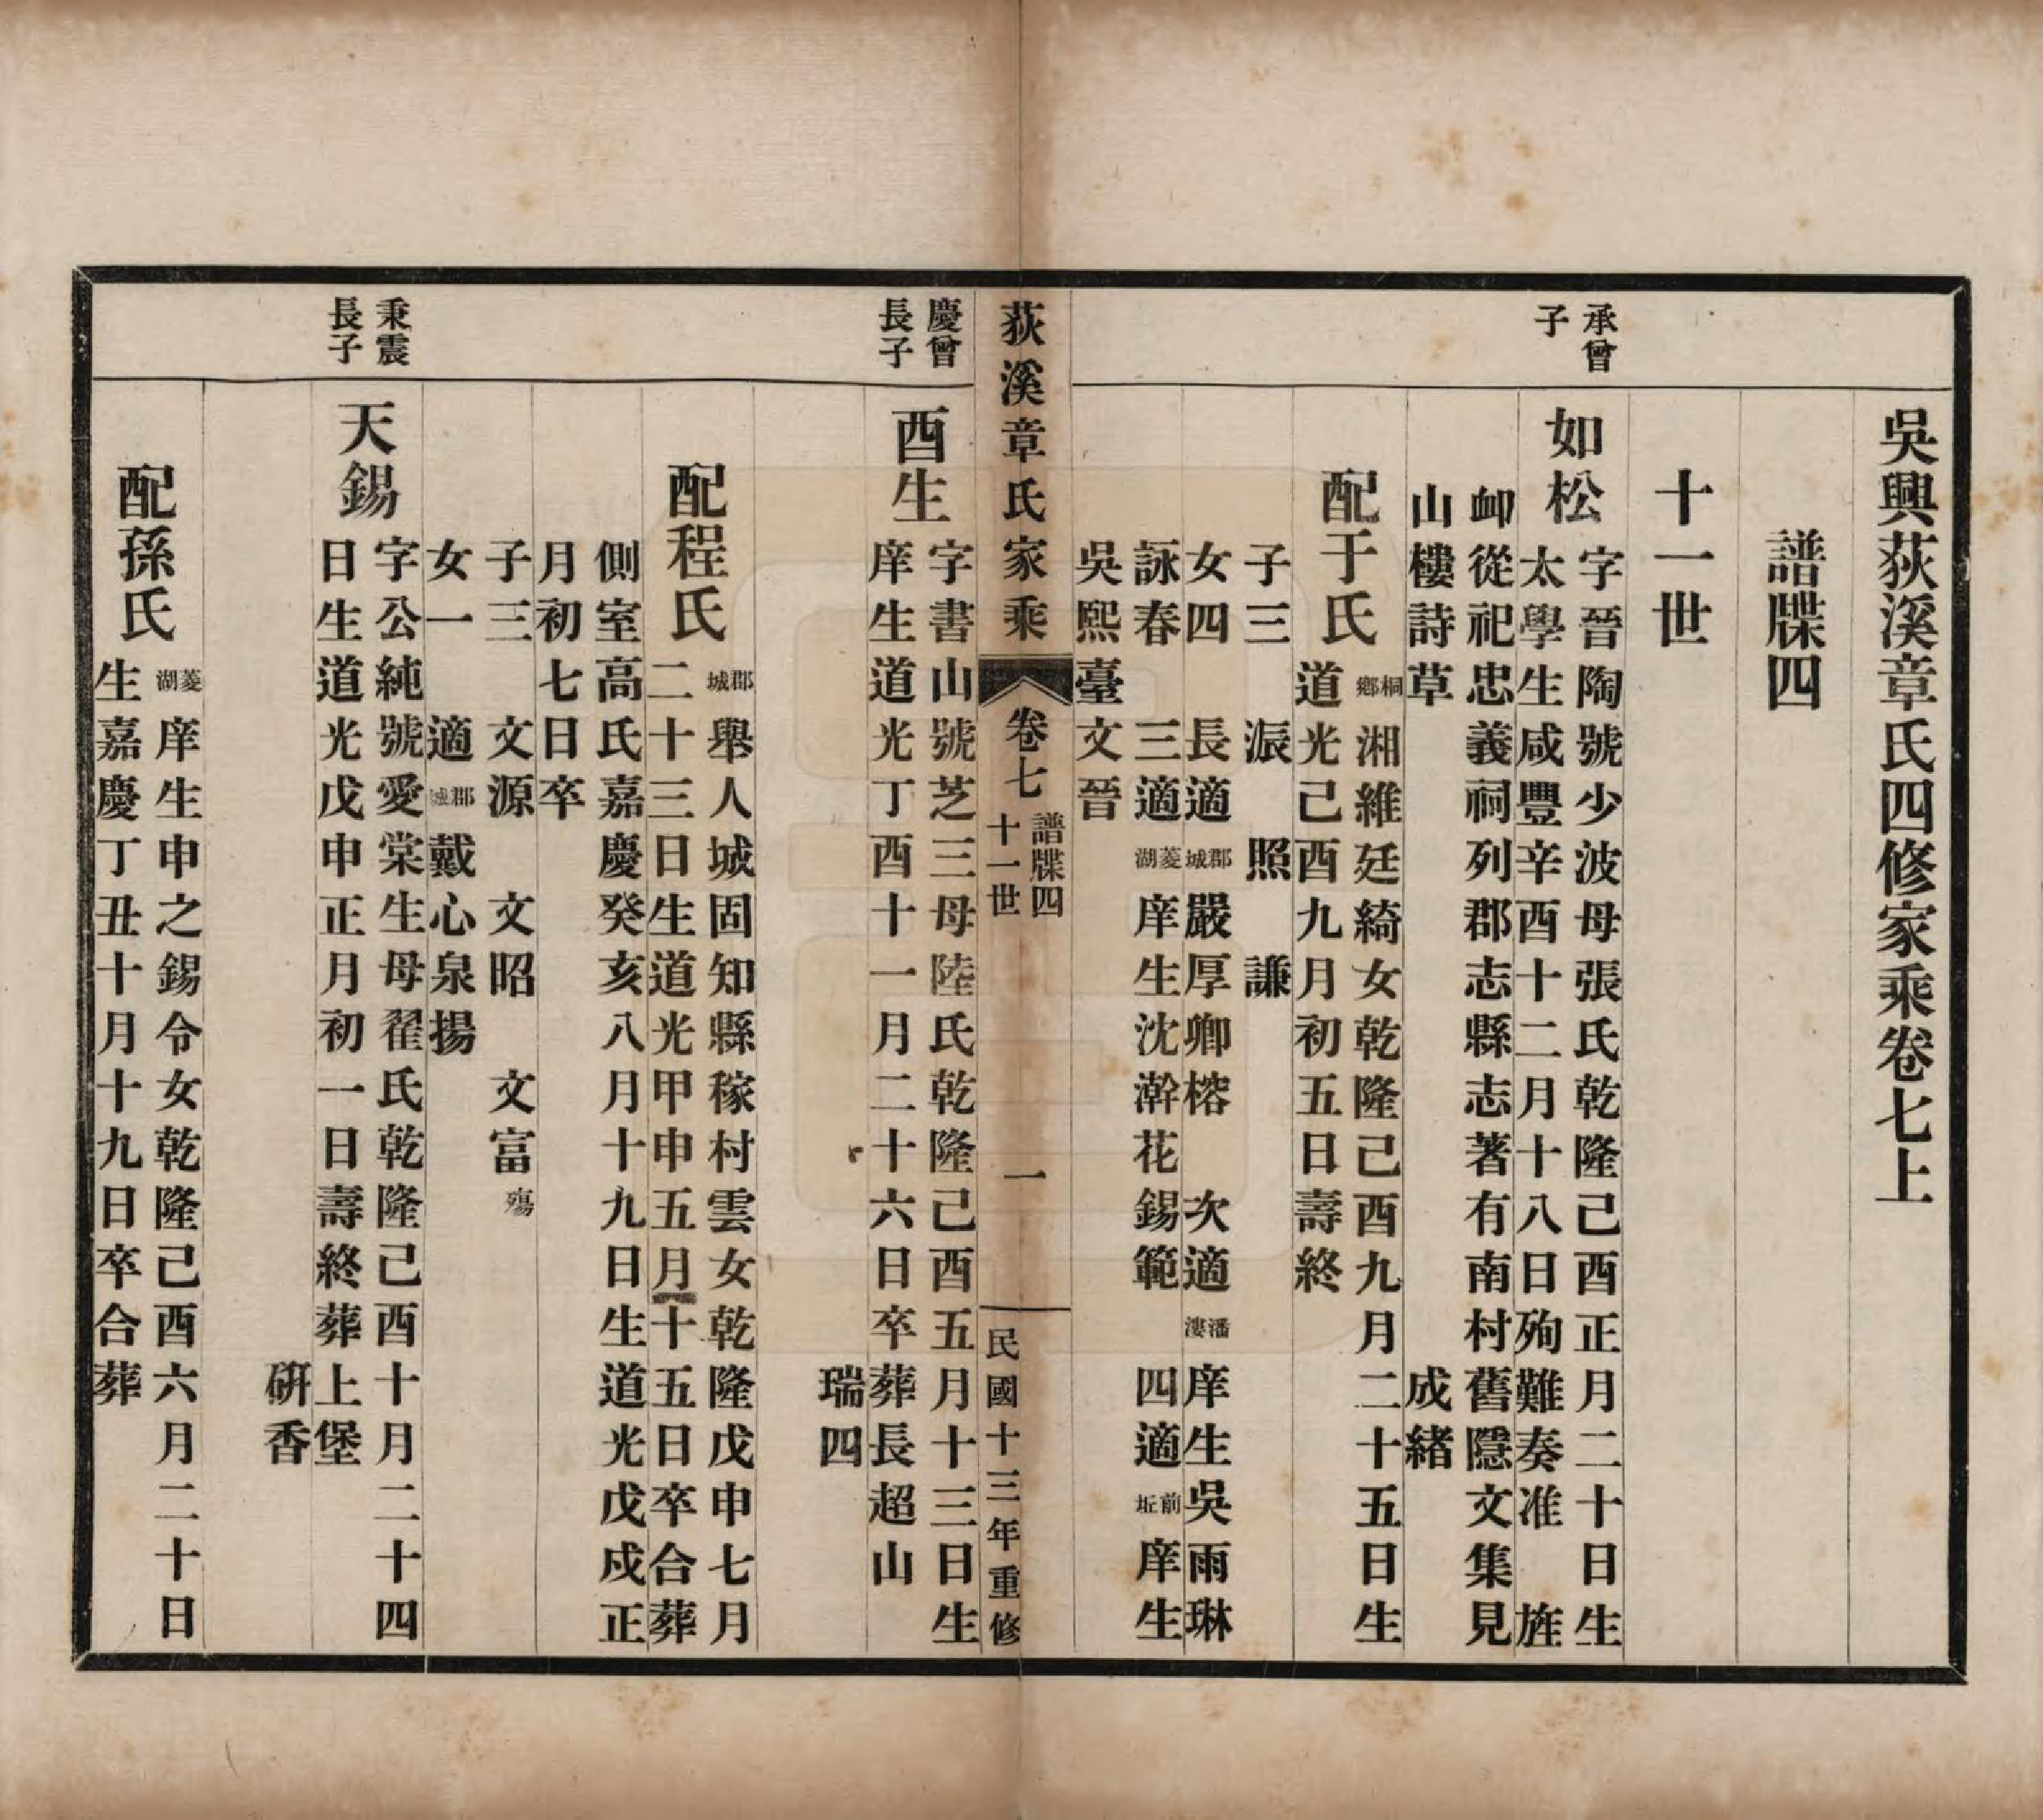 吳興荻溪章氏四修家乘卷七上
譜牒四
十一世
承曾
子
如松
字晉陶號少波母張氏乾隆己酉正月二十日生
太學生咸豐辛酉十二月十八日殉難奏准 旌
卹從祀忠義祠列郡志縣志著有南村舊隱文集見
山樓詩草 成緒
配于氏
桐鄉 湘維廷綺女乾隆己酉九月二十五日生
道光己酉九月初五日壽終
子三 浱 照 謙
女四 長適 郡城 嚴厚卿榕 次適 潘漊 庠生吳雨琳
詠春 三適 菱湖 庠生沈澣花錫範 四適 前坵 庠生
吳熙臺文晉
荻溪章氏家乘 卷七 譜牒四 十一世 一 民國十三年重修
慶曾
長子
酉生
字書山號芝三母陸氏乾隆己酉五月十三日生
庠生道光丁酉十一月二十六日卒葬長超山
瑞四
配程氏
郡城 舉人城固知縣稼村雲女乾隆戊申七月
二十三日生道光甲申五月十五日卒合葬
側室高氏嘉慶癸亥八月十九日生道光戊戌正
月初七日卒
子三 文源 文昭 文富 殤
女一 適 郡城 戴心泉揚
秉震
長子
天錫
字公純號愛棠生母翟氏乾隆己酉十月二十四
日生道光戊申正月初一日壽終葬上堡
硏香
配孫氏
菱湖 庠生申之錫令女乾隆己酉六月二十日
生嘉慶丁丑十月十九日卒合葬